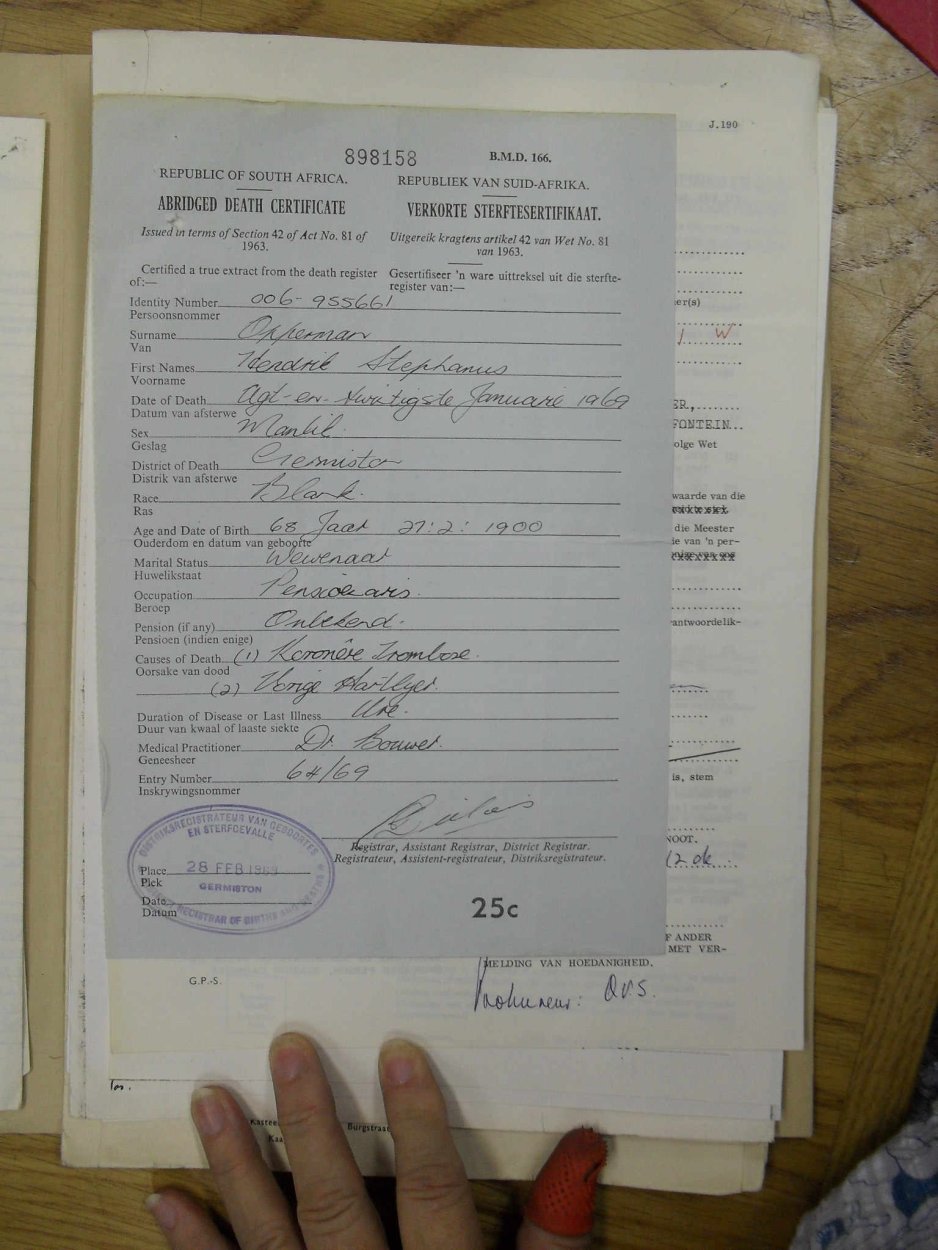 J.190
898158 B.M.D. 166.
REPUBLIC OF SOUTH AFRICA. REPUBLIEK VAN SUID-AFRIKA.
ABRIDGED DEATH CERTIFICATE VERKORTE STERFTESERTIFIKAAT.
Issued in terms of Section 42 of Act No. 81 of Uitgereik kragtens artikel 42 van Wet No. 81
1963. van 1963.
Certified a true extract from the death register Gesertifiseer 'n ware uittreksel uit die sterfte-
of:— register van:—
Identity Number 006-955661
Persoonsnommer
Surname Opperman
Van
First Names Hendrik Stephanus
Voorname
Date of Death Agt-en-twintigste Januarie 1969
Datum van afsterwe
Sex Manlik.
Geslag
District of Death Germiston
Distrik van afsterwe
Race Blank.
Ras
Age and Date of Birth 68 Jaar 27:2:1900
Ouderdom en datum van geboorte
Marital Status Wewenaar
Huwelikstaat
Occupation Pensioenaris.
Beroep
Pension (if any) Onbekend.
Pensioen (indien enige)
Causes of Death (1) Koronêre Trombose.
Oorsake van dood
(2) Vorige Hartlyer.
Duration of Disease or Last Illness Ure.
Duur van kwaal of laaste siekte
Medical Practitioner Dr. Bouwer.
Geneesheer
Entry Number 64/69
Inskrywingsnommer
Registrar, Assistant Registrar, District Registrar.
Registrateur, Assistent-registrateur, Distriksregistrateur.
DISTRIKSREGISTRATEUR VAN GEBOORTES
EN STERFGEVALLE
Place 28 FEB 1969
Plek GERMISTON
Date
Datum
REGISTRAR OF BIRTHS AND DEATHS
25c
er(s)
W
ER,
FONTEIN...
olge Wet
waarde van die
die Meester
ie van 'n per-
antwoordelik-
is, stem
NOOT.
F ANDER
MET VER-
MELDING VAN HOEDANIGHEID.
G.P.-S.
Prokureur: O.V.S.
Kasteel
Burgstraat
Kaa